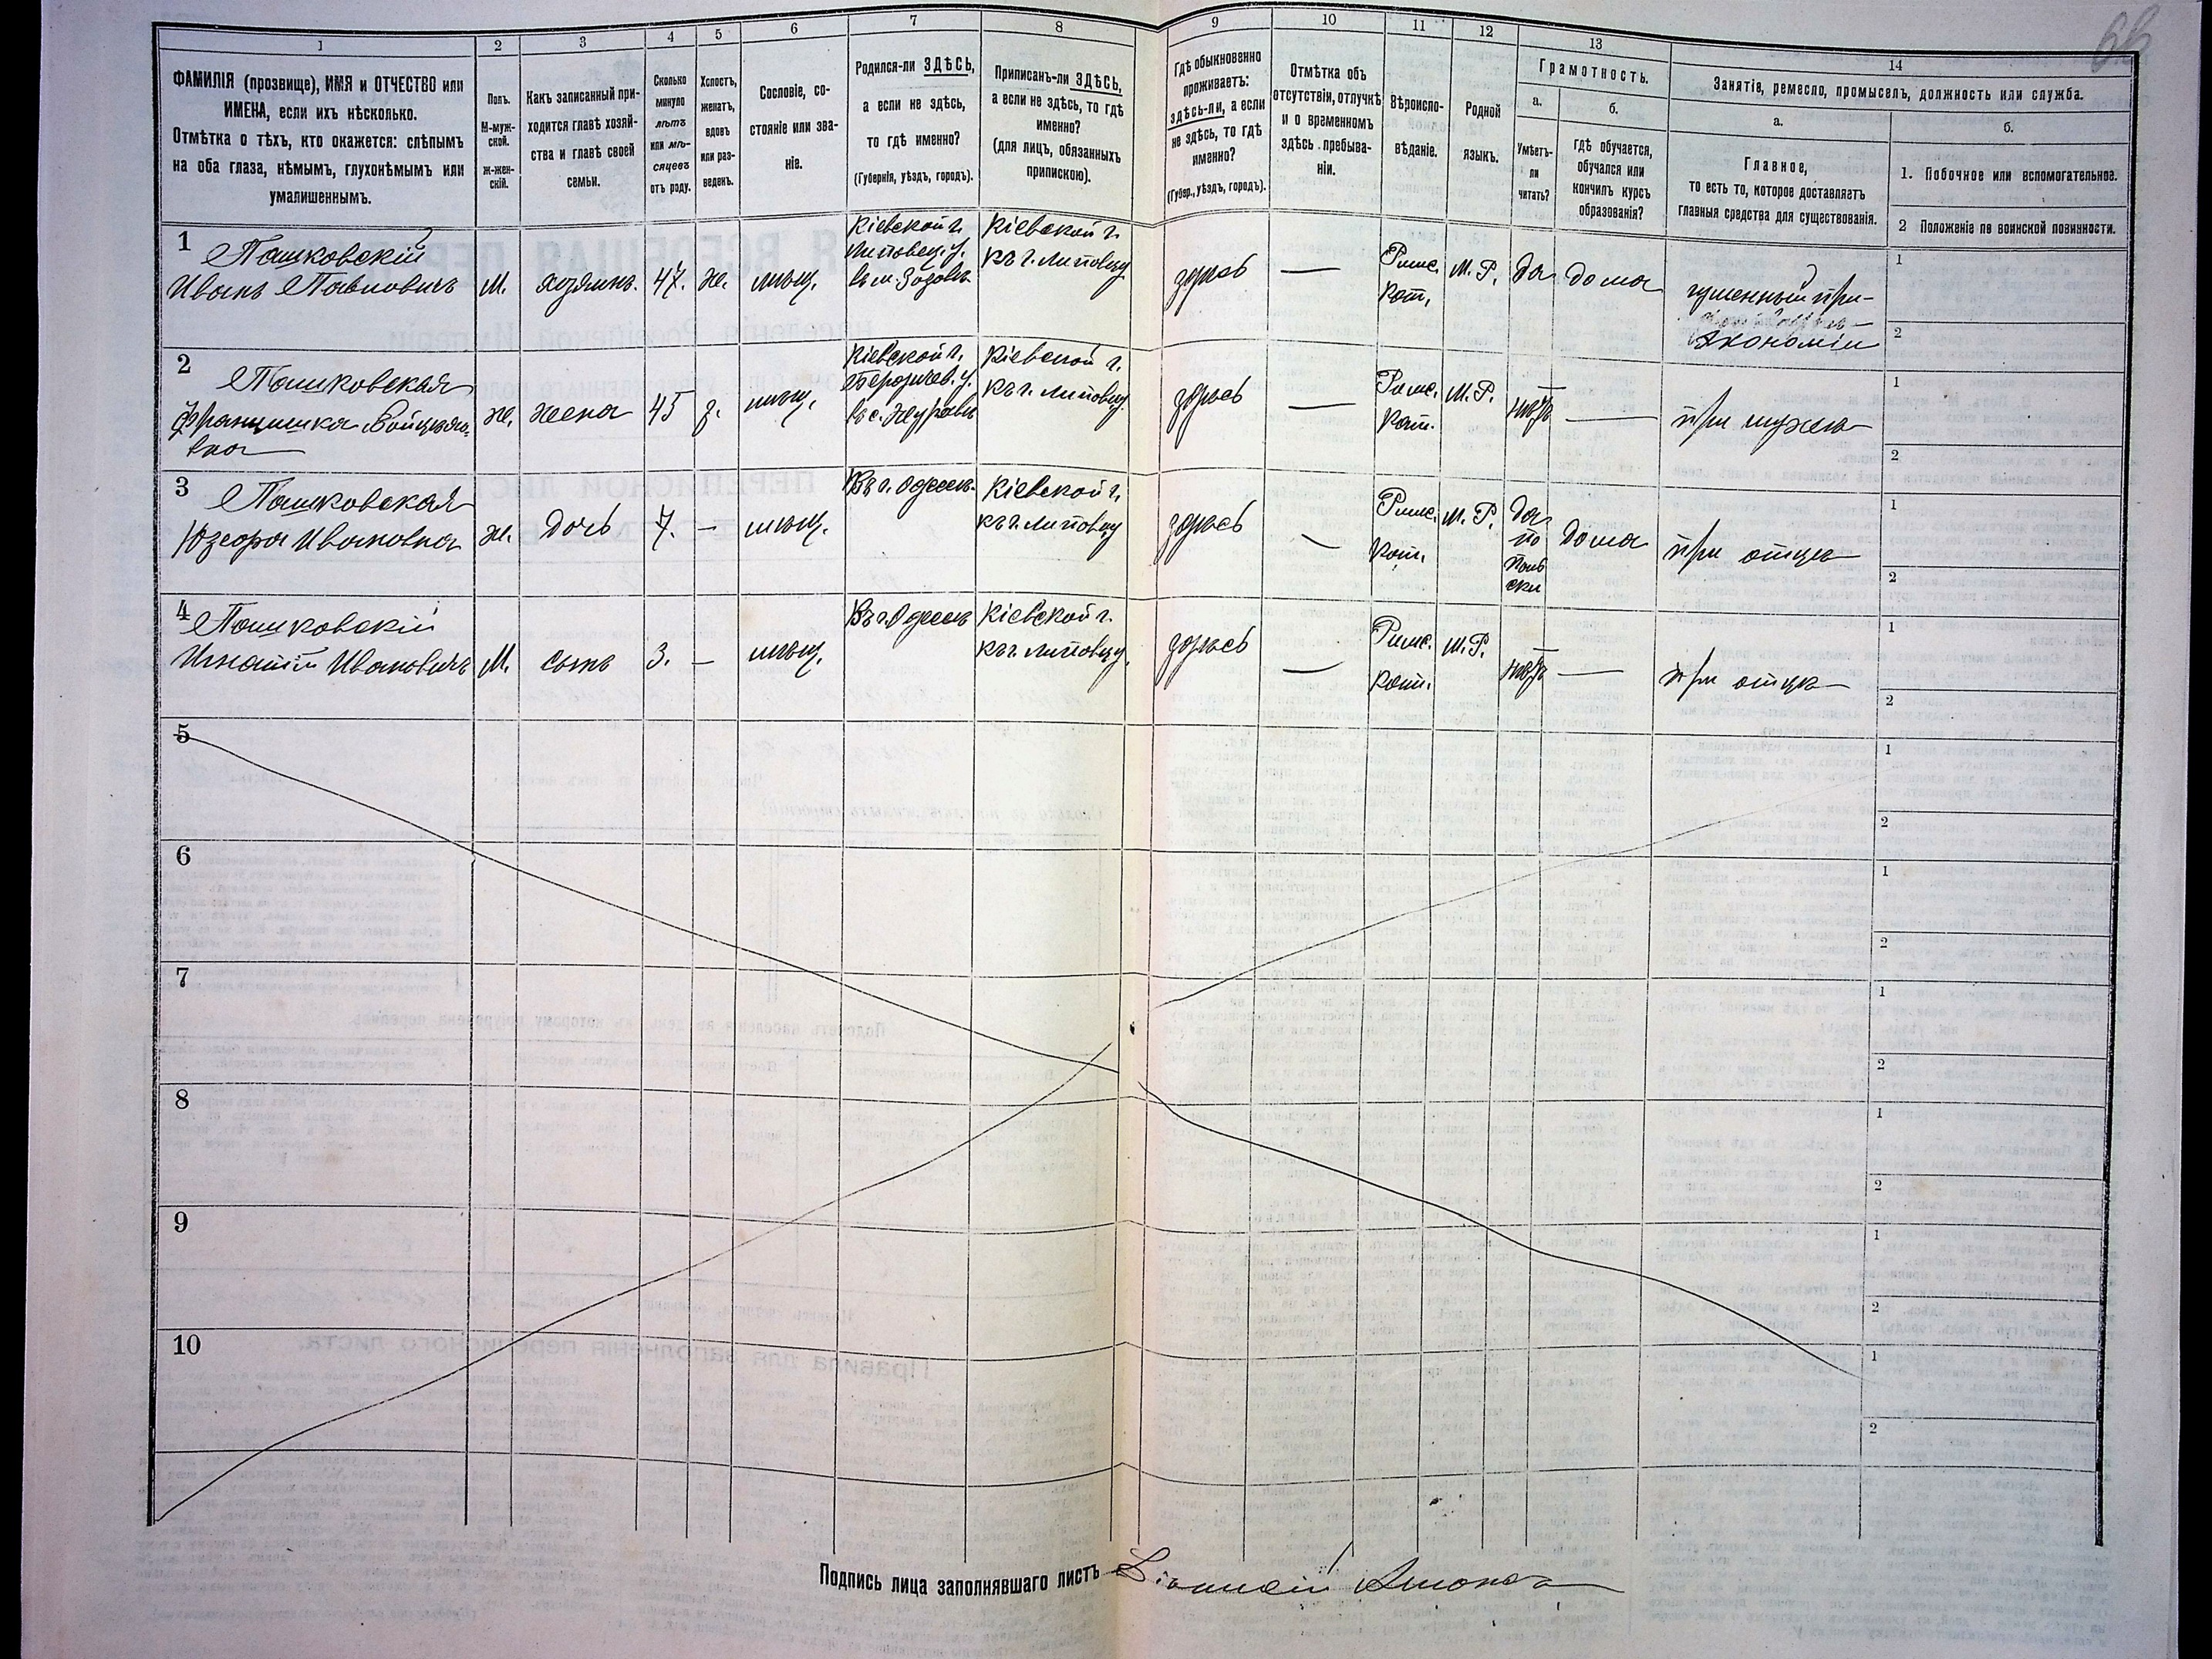 1 2 3 4 5 6 7 8 9 10 11 12 13 14
ФАМИЛІЯ (прозвище), ИМЯ и ОТЧЕСТВО или
ИМЕНА, если ихъ нѣсколько.
Отмѣтка о тѣхъ, кто окажется: слѣпымъ
на оба глаза, нѣмымъ, глухонѣмымъ или
умалишеннымъ.
Полъ.
М-муж-
ской.
Ж-жен-
скій.
Какъ записанный при-
ходится главѣ хозяй-
ства и главѣ своей
семьи.
Сколько
минуло
лѣтъ
или мѣ-
сяцевъ
отъ роду.
Холостъ,
женатъ,
вдовъ
или раз-
веденъ.
Сословіе, со-
стояніе или зва-
ніе.
Родился-ли ЗДѢСЬ,
а если не здѣсь,
то гдѣ именно?
(Губернія, уѣздъ, городъ).
Приписанъ-ли ЗДѢСЬ,
а если не здѣсь, то гдѣ
именно?
(для лицъ, обязанныхъ
припискою).
Гдѣ обыкновенно
проживаетъ:
здѣсь-ли, а если
не здѣсь, то гдѣ
именно?
(Губер., уѣздъ, городъ).
Отмѣтка объ
отсутствіи, отлучкѣ
и о временномъ
здѣсь пребыва-
ніи.
Вѣроиспо-
вѣданіе.
Родной
языкъ.
Грамотность.
а.
Умѣетъ-
ли
читать?
б.
гдѣ обучается,
обучался или
кончилъ курсъ
образованія?
Занятія, ремесло, промыселъ, должность или служба.
а.
Главное,
то есть то, которое доставляетъ
главныя средства для существованія.
б.
1. Побочное или вспомогательное.
2 Положеніе по воинской повинности.
1
Пашковскій
Иванъ Павловичъ
М.
хозяинъ.
47.
ж.
мѣщ.
Кіевской г.
Липовец. у.
въ м. Зозовъ
Кіевской г.
къ г. Липовцу
здѣсь
—
Римс.
Кат.
М. Р.
да
дома
при-
Экономіи
1
2
2
Пашковская
Францишка Войцѣхо-
вна
ж.
жена
45
з.
мѣщ.
Кіевской г.
Бердичев. у.
въ с. Журавли
Кіевской г.
къ г. Липовцу
здѣсь
—
Римс.
Кат.
М. Р.
нѣтъ
—
при мужѣ
1
2
3
Пашковская
Юзефа Ивановна
ж.
дочь
7.
—
мѣщ.
Въ г. Одессѣ
Кіевской г.
къ г. Липовцу
здѣсь
—
Римс.
Кат.
М. Р.
да
по
поль
ски
дома
при отцѣ
1
2
4
Пашковскій
Игнатій Ивановичъ
М.
сынъ
3.
—
мѣщ.
Въ г. Одессѣ
Кіевской г.
къ г. Липовцу.
здѣсь
—
Римс.
Кат.
М. Р.
нѣтъ
—
при отцѣ
1
2
5
1
2
6
1
2
7
1
2
8
1
2
9
1
2
10
1
2
Подпись лица заполнявшаго листъ